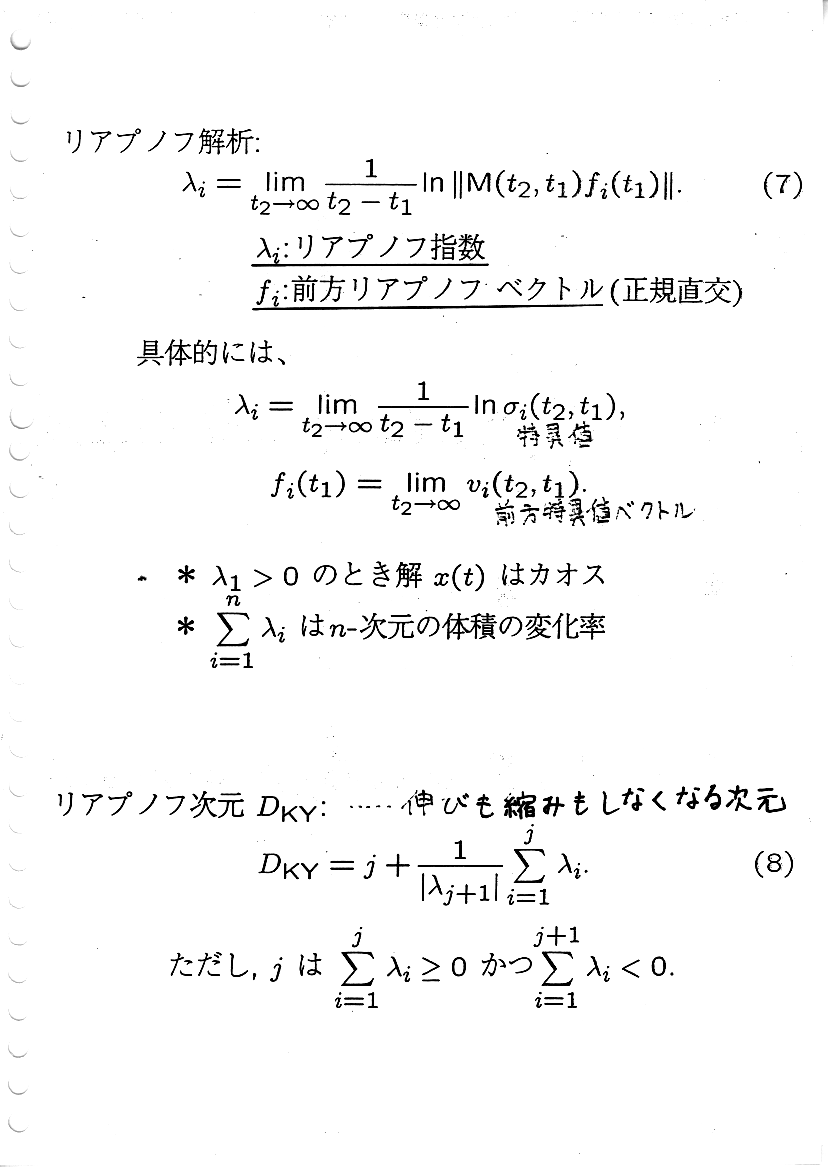 リアプノフ解析:
λ_i = lim_{t_2→∞} \frac{1}{t_2 − t_1} ln ‖M(t_2, t_1)f_i(t_1)‖. (7)
λ_i:リアプノフ指数
f_i:前方リアプノフ ベクトル (正規直交)
具体的には、
λ_i = lim_{t_2→∞} \frac{1}{t_2 − t_1} ln σ_i(t_2, t_1),
特異値
f_i(t_1) = lim_{t_2→∞} v_i(t_2, t_1).
前方特異値ベクトル
* λ_1 > 0 のとき解 x(t) はカオス
* \sum_{i=1}^{n} λ_i はn-次元の体積の変化率
リアプノフ次元 D_{KY}: ····· 伸びも縮みもしなくなる次元
D_{KY} = j + \frac{1}{|λ_{j+1}|} \sum_{i=1}^{j} λ_i. (8)
ただし, j は \sum_{i=1}^{j} λ_i ≥ 0 かつ \sum_{i=1}^{j+1} λ_i < 0.